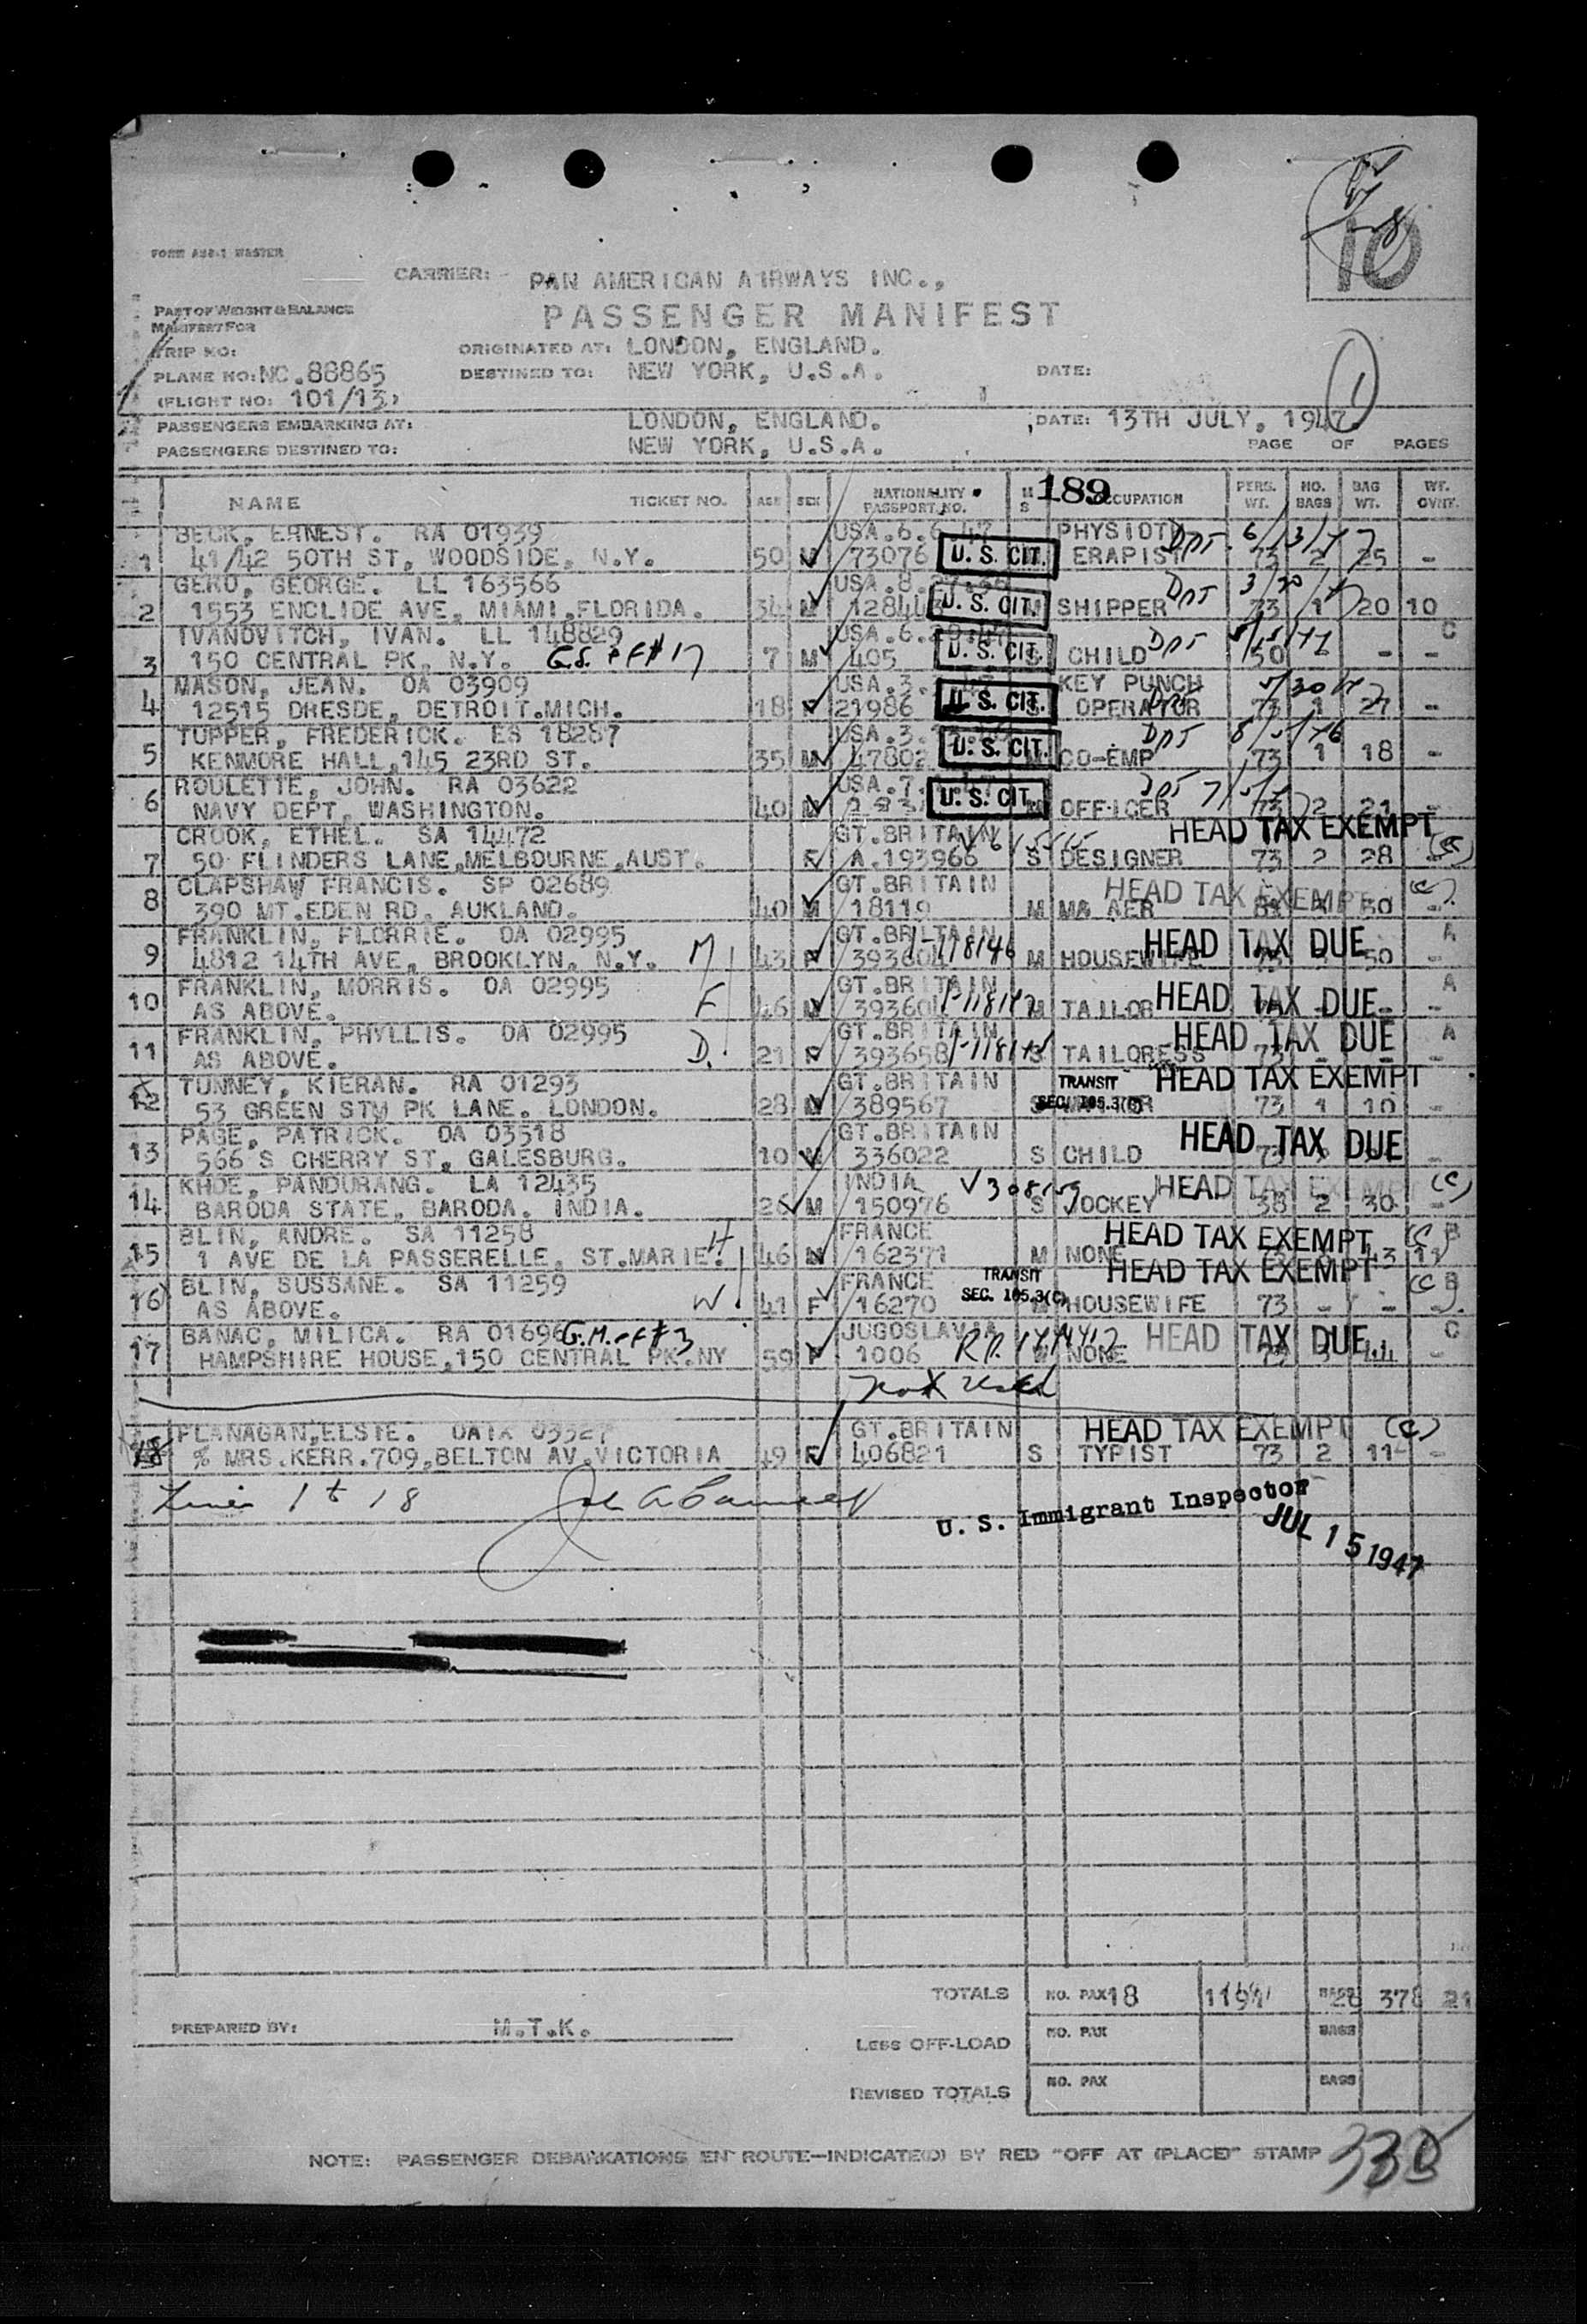 10
FORM
MASTER
CARRIER: PAN AMERICAN AIRWAYS INC.,
PASSENGER MANIFEST
PART OF WEIGHT & BALANCE
MANIFEST FOR
TRIP NO:
ORIGINATED AT: LONDON, ENGLAND.
PLANE NO: NC.88865
DESTINED TO: NEW YORK, U.S.A.
DATE:
(FLIGHT NO: 101/13)
1
PASSENGERS EMBARKING AT: LONDON, ENGLAND. DATE: 13TH JULY, 1947
PASSENGERS DESTINED TO: NEW YORK, U.S.A. PAGE OF PAGES
NAME TICKET NO. AGE SEX NATIONALITY PASSPORT NO. M S 189 OCCUPATION PERS. WT. NO. BAGS BAG WT. WT. OVNT.
BECK, ERNEST. RA 01939 USA.6.6.47 PHYSIOTH
1 41/42 50TH ST, WOODSIDE, N.Y. 50 M 73076 U. S. CIT. ERAPIST 73 2 25 -
GEKO, GEORGE. LL 163566 USA.8.
2 1553 ENCLIDE AVE, MIAMI,FLORIDA. 34 M U. S. CIT. M SHIPPER 73 1 20 10
IVANOVITCH, IVAN. LL 148829 USA.6. C
3 150 CENTRAL PK, N.Y. 7 M 405 U. S. CIT. CHILD 50 - -
MASON, JEAN. OA 03909 USA.3. KEY PUNCH
4 12515 DRESDE, DETROIT.MICH. 18 F 21986 U. S. CIT. OPERATOR 73 1 27 -
TUPPER, FREDERICK. ES 18287 USA.3.
5 KENMORE HALL,145 23RD ST. 35 M 47802 U. S. CIT. CO-EMP 73 1 18 -
ROULETTE, JOHN. RA 03622 USA.7.
6 NAVY DEPT, WASHINGTON. 40 M U. S. CIT. OFFICER 73 2 21 -
CROOK, ETHEL. SA 14472 GT.BRITAIN HEAD TAX EXEMPT
7 50 FLINDERS LANE,MELBOURNE,AUST. F A.193966 S DESIGNER 73 2 28
CLAPSHAW FRANCIS. SP 02689 GT.BRITAIN HEAD TAX EXEMPT (C)
8 390 MT.EDEN RD, AUKLAND. 40 M 18119 M
FRANKLIN, FLORRIE. OA 02995 GT.BRITAIN HEAD TAX DUE A
9 4812 14TH AVE, BROOKLYN, N.Y. M 43 F M HOUSEWIFE 50 -
FRANKLIN, MORRIS. OA 02995 GT.BRITAIN HEAD TAX DUE A
10 AS ABOVE. F 46 M M TAILOR
FRANKLIN, PHYLLIS. OA 02995 GT.BRITAIN HEAD TAX DUE A
11 AS ABOVE. D. 21 F 393658 S TAILORESS 73 - - -
TUNNEY, KIERAN. RA 01293 GT.BRITAIN TRANSIT HEAD TAX EXEMPT
12 53 GREEN ST, PK LANE. LONDON. 28 M 389567 S SEC. 105.3(C) 73 1 10 -
PAGE, PATRICK. OA 03518 GT.BRITAIN HEAD TAX DUE
13 566 S CHERRY ST, GALESBURG. 10 M 336022 S CHILD 73 -
KHOE, PANDURANG. LA 12435 INDIA HEAD TAX EXEMPT (C)
14 BARODA STATE, BARODA. INDIA. 26 M 150976 S JOCKEY 38 2 30 -
BLIN, ANDRE. SA 11258 H FRANCE HEAD TAX EXEMPT (C) B
15 1 AVE DE LA PASSERELLE, ST.MARIE. 46 M 162371 M NONE 43 11
BLIN, SUSSANE. SA 11259 FRANCE TRANSIT HEAD TAX EXEMPT (C) B
16 AS ABOVE. W. 41 F 16270 SEC. 105.3(C) M HOUSEWIFE 73 - - -
BANAC, MILICA. RA 01696 JUGOSLAVIA HEAD TAX DUE C
17 HAMPSHIRE HOUSE,150 CENTRAL PK.NY 59 F 1006 NONE 73 44 -
FLANAGAN,ELSIE. GT.BRITAIN HEAD TAX EXEMPT (C)
18 % MRS.KERR.709,BELTON AV.VICTORIA 49 F 406821 S TYPIST 73 2 11 -
1 to 18
U. S. Immigrant Inspector
JUL 15 1947
TOTALS NO. PAX 18 BAGS 26 378 21
PREPARED BY: M.T.K.
LESS OFF-LOAD NO. PAX BAGS
REVISED TOTALS NO. PAX BAGS
NOTE: PASSENGER DEBARKATIONS EN ROUTE—INDICATE(D) BY RED "OFF AT (PLACE)" STAMP